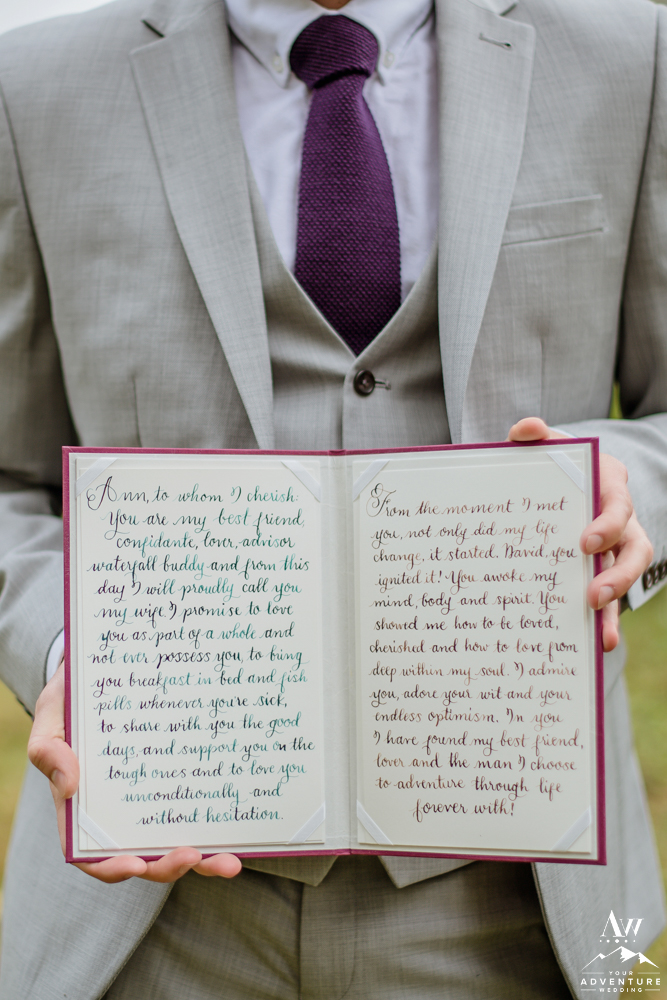 Ann, to whom I cherish:
You are my best friend,
confidante, lover, advisor
waterfall buddy and from this
day I will proudly call you
my wife. I promise to love
you as part of a whole and
not ever possess you, to bring
you breakfast in bed and fish
pills whenever you're sick,
to share with you the good
days, and support you on the
tough ones and to love you
unconditionally and
without hesitation.
From the moment I met
you, not only did my life
change, it started. David, you
ignited it! You awoke my
mind, body and spirit. You
showed me how to be loved,
cherished and how to love from
deep within my soul. I admire
you, adore your wit and your
endless optimism. In you
I have found my best friend,
lover and the man I choose
to adventure through life
forever with!
AW
YOUR
ADVENTURE
WEDDING